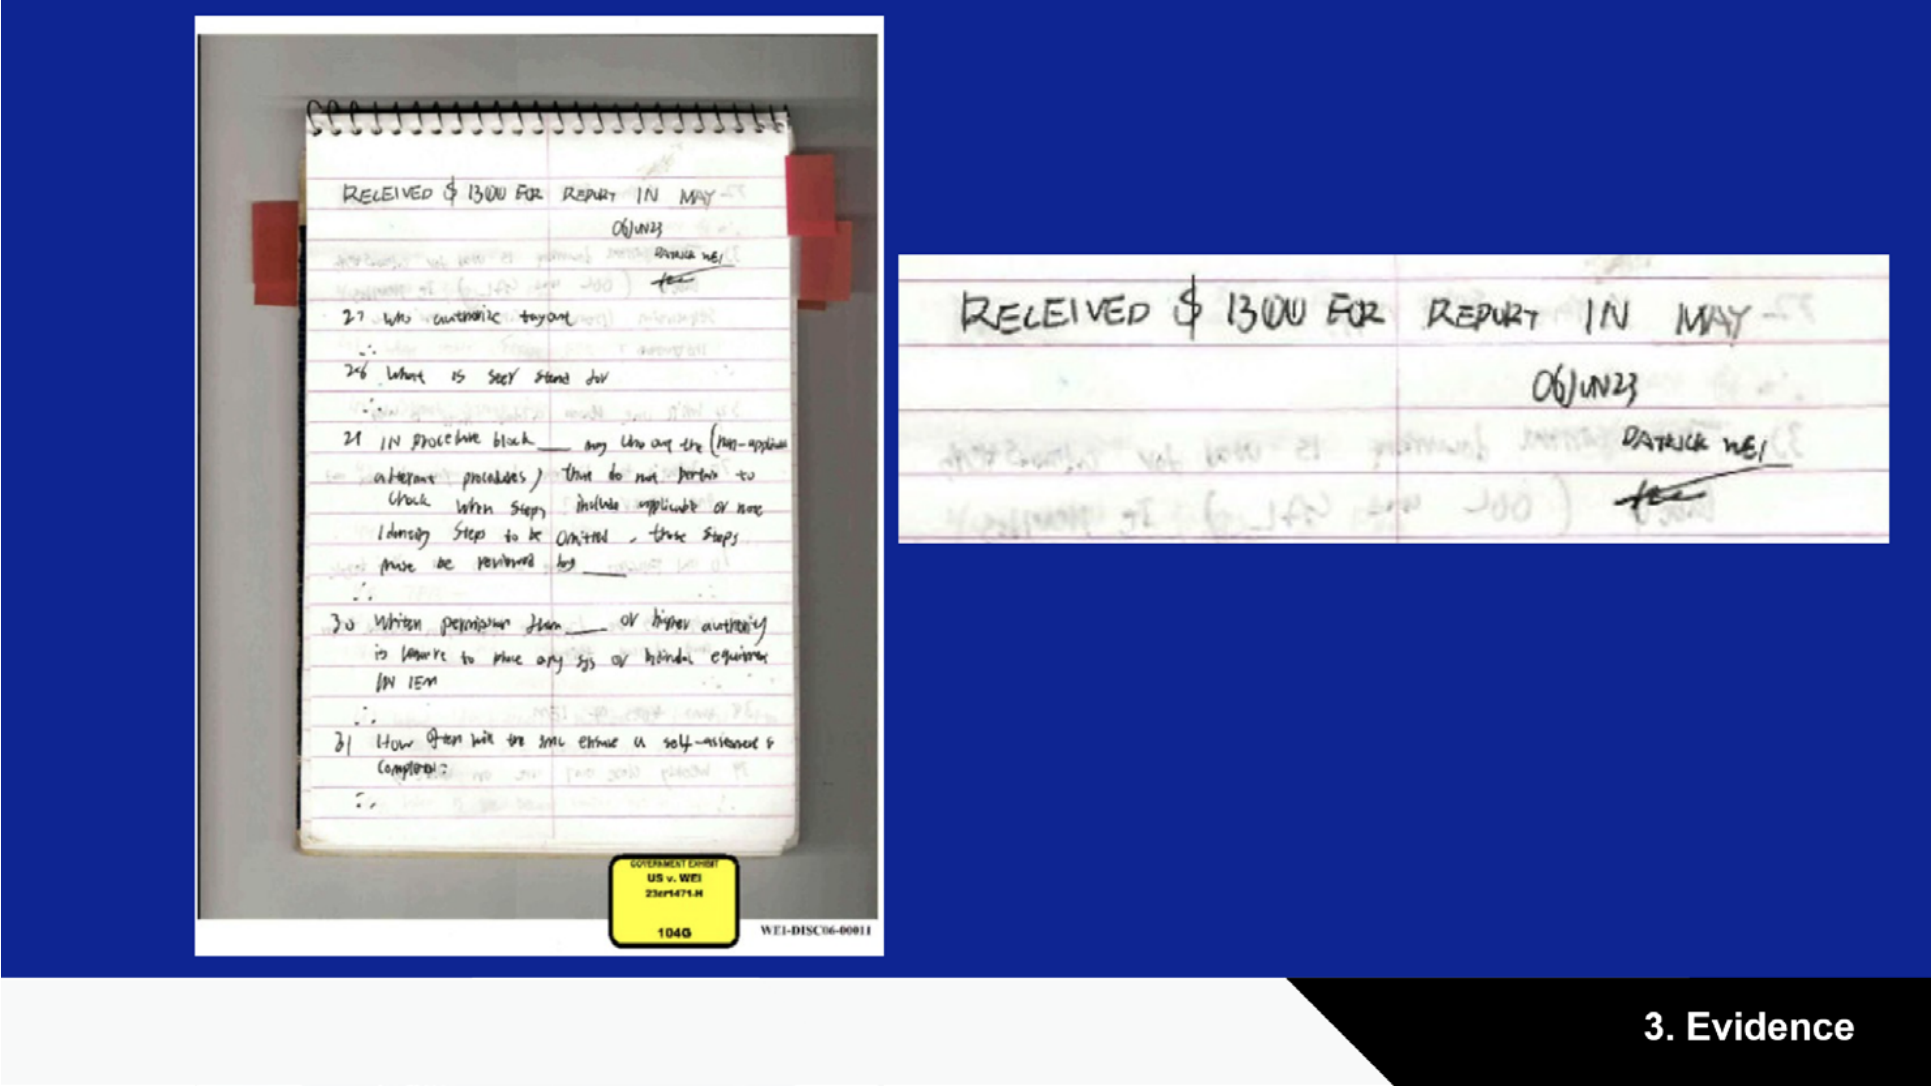 RECEIVED $ 1300 FOR REPORT IN MAY
06JUN23
PATRICK WEI
27 Who authorize tagout
∴
28 What is stand for
∴
IN procedure block ___ any the (non-applicable
procedures) that do not pertain to
check when steps include applicable or none
steps to be omitted, those steps
must be reviewed by ___
∴
30 Written permission from ___ or higher authority
is to place any sys or equipment
IN IEM
∴
31 How often will the ensure a self-assessment is
completed:
∴
GOVERNMENT EXHIBIT
US v. WEI
23cr1471-H
104G
WEI-DISC06-00011
RECEIVED $ 1300 FOR REPORT IN MAY
06JUN23
PATRICK WEI
3. Evidence